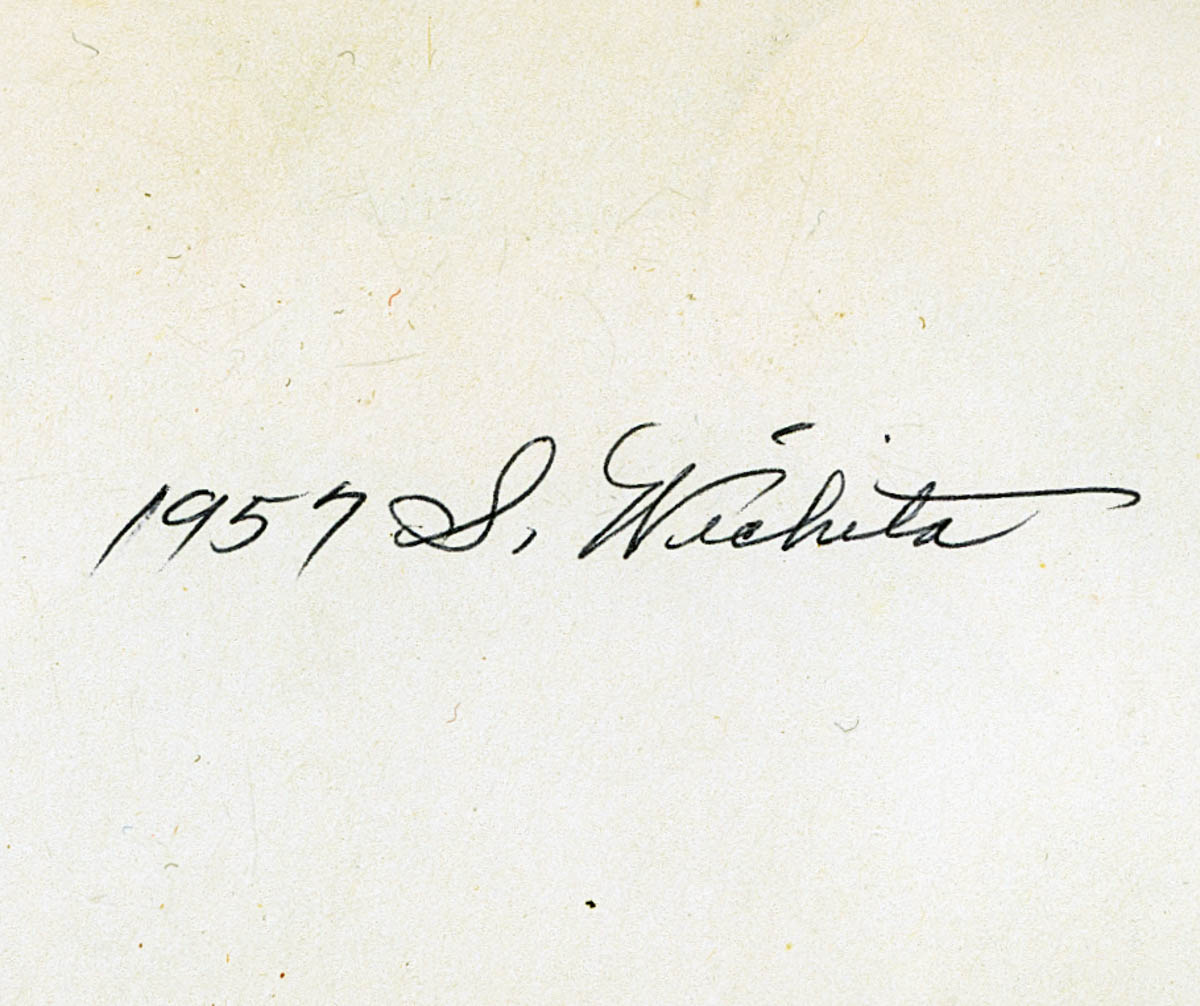 1957 S. Wichita